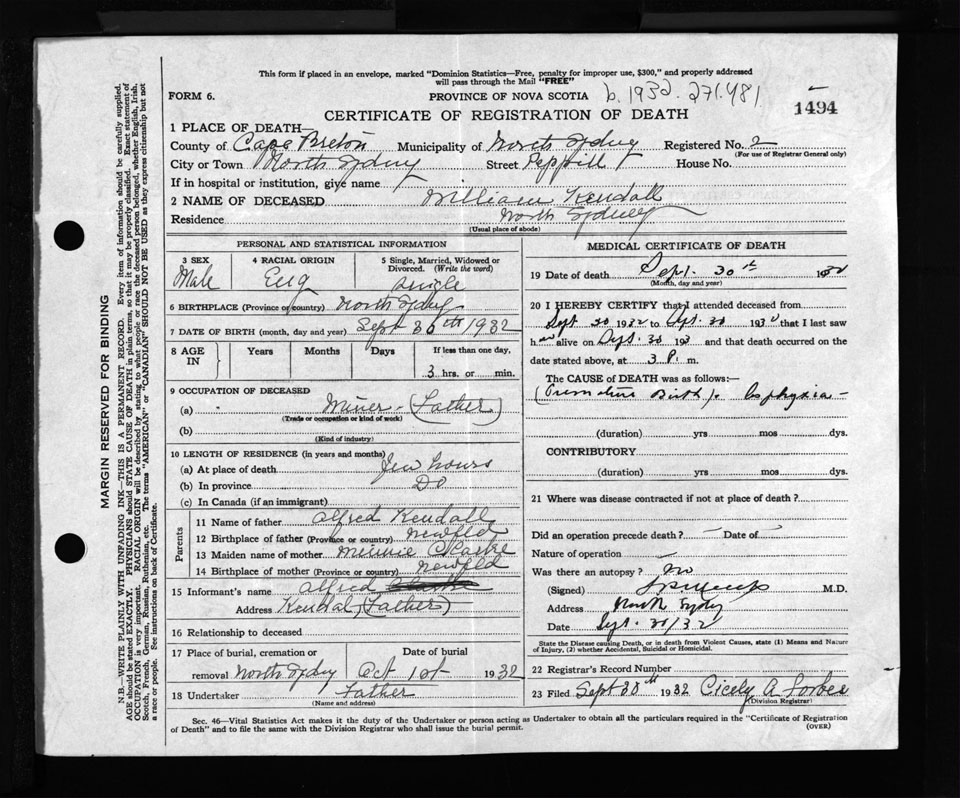 This form if placed in an envelope, marked "Dominion Statistics—Free, penalty for improper use, $300," and properly addressed
will pass through the Mail "FREE"
FORM 6. PROVINCE OF NOVA SCOTIA b. 1932. 271481 1494
CERTIFICATE OF REGISTRATION OF DEATH
1 PLACE OF DEATH—
County of Cape Breton Municipality of North Sydney Registered No. 2
(For use of Registrar General only)
City or Town North Sydney Street Peppett House No.
If in hospital or institution, give name
2 NAME OF DECEASED William Kendall
Residence North Sydney
(Usual place of abode)
PERSONAL AND STATISTICAL INFORMATION
3 SEX 4 RACIAL ORIGIN 5 Single, Married, Widowed or
Divorced. (Write the word)
Male Eng Single
6 BIRTHPLACE (Province or country) North Sydney
7 DATE OF BIRTH (month, day and year) Sept 30th 1932
8 AGE IN Years Months Days If less than one day,
3 hrs. or min.
9 OCCUPATION OF DECEASED
(a) Miner (Father)
(Trade or occupation or kind of work)
(b)
(Kind of industry)
10 LENGTH OF RESIDENCE (in years and months)
(a) At place of death Few hours
(b) In province Do
(c) In Canada (if an immigrant)
Parents
11 Name of father Alfred Kendall
12 Birthplace of father (Province or country) Newfld
13 Maiden name of mother Minnie
14 Birthplace of mother (Province or country) Newfld
15 Informant's name Alfred
Address Kendal, (Father)
16 Relationship to deceased
17 Place of burial, cremation or Date of burial
removal North Sydney Oct 1st 1932
18 Undertaker Father
(Name and address)
MEDICAL CERTIFICATE OF DEATH
19 Date of death Sept. 30th 1932
(Month, day and year)
20 I HEREBY CERTIFY that I attended deceased from
Sept 30 1932 to Sept. 30 1932 that I last saw
h alive on Sept. 30 193 and that death occurred on the
date stated above, at 3 P. m.
The CAUSE OF DEATH was as follows:—
(Premature Birth). Asphyxia —
(duration) yrs mos dys.
CONTRIBUTORY
(duration) yrs mos dys.
21 Where was disease contracted if not at place of death?
Did an operation precede death? — Date of —
Nature of operation —
Was there an autopsy? No
(Signed) M.D.
Address North Sydney
Date Sept. 30/32
State the Disease causing Death, or in death from Violent Causes, state (1) Means and Nature
of Injury, (2) whether Accidental, Suicidal or Homicidal.
22 Registrar's Record Number
23 Filed Sept 30th 1932 Cicely A Forbes
(Division Registrar)
Sec. 46—Vital Statistics Act makes it the duty of the Undertaker or person acting as Undertaker to obtain all the particulars required in the "Certificate of Registration
of Death" and to file the same with the Division Registrar who shall issue the burial permit. (OVER)
MARGIN RESERVED FOR BINDING
N.B.—WRITE PLAINLY WITH UNFADING INK—THIS IS A PERMANENT RECORD. Every item of information should be carefully supplied.
AGE should be stated EXACTLY. PHYSICIANS should STATE CAUSE OF DEATH in plain terms, so that it may be properly classified. Exact statement of
OCCUPATION is very important. RACIAL ORIGIN will be described by stating to what people or race the deceased person belonged, whether English, Irish,
Scotch, French, German, Russian, Ruthenian, etc. The terms "AMERICAN" or "CANADIAN" SHOULD NOT BE USED as they express citizenship but not
a race or people. See instructions on back of Certificate.